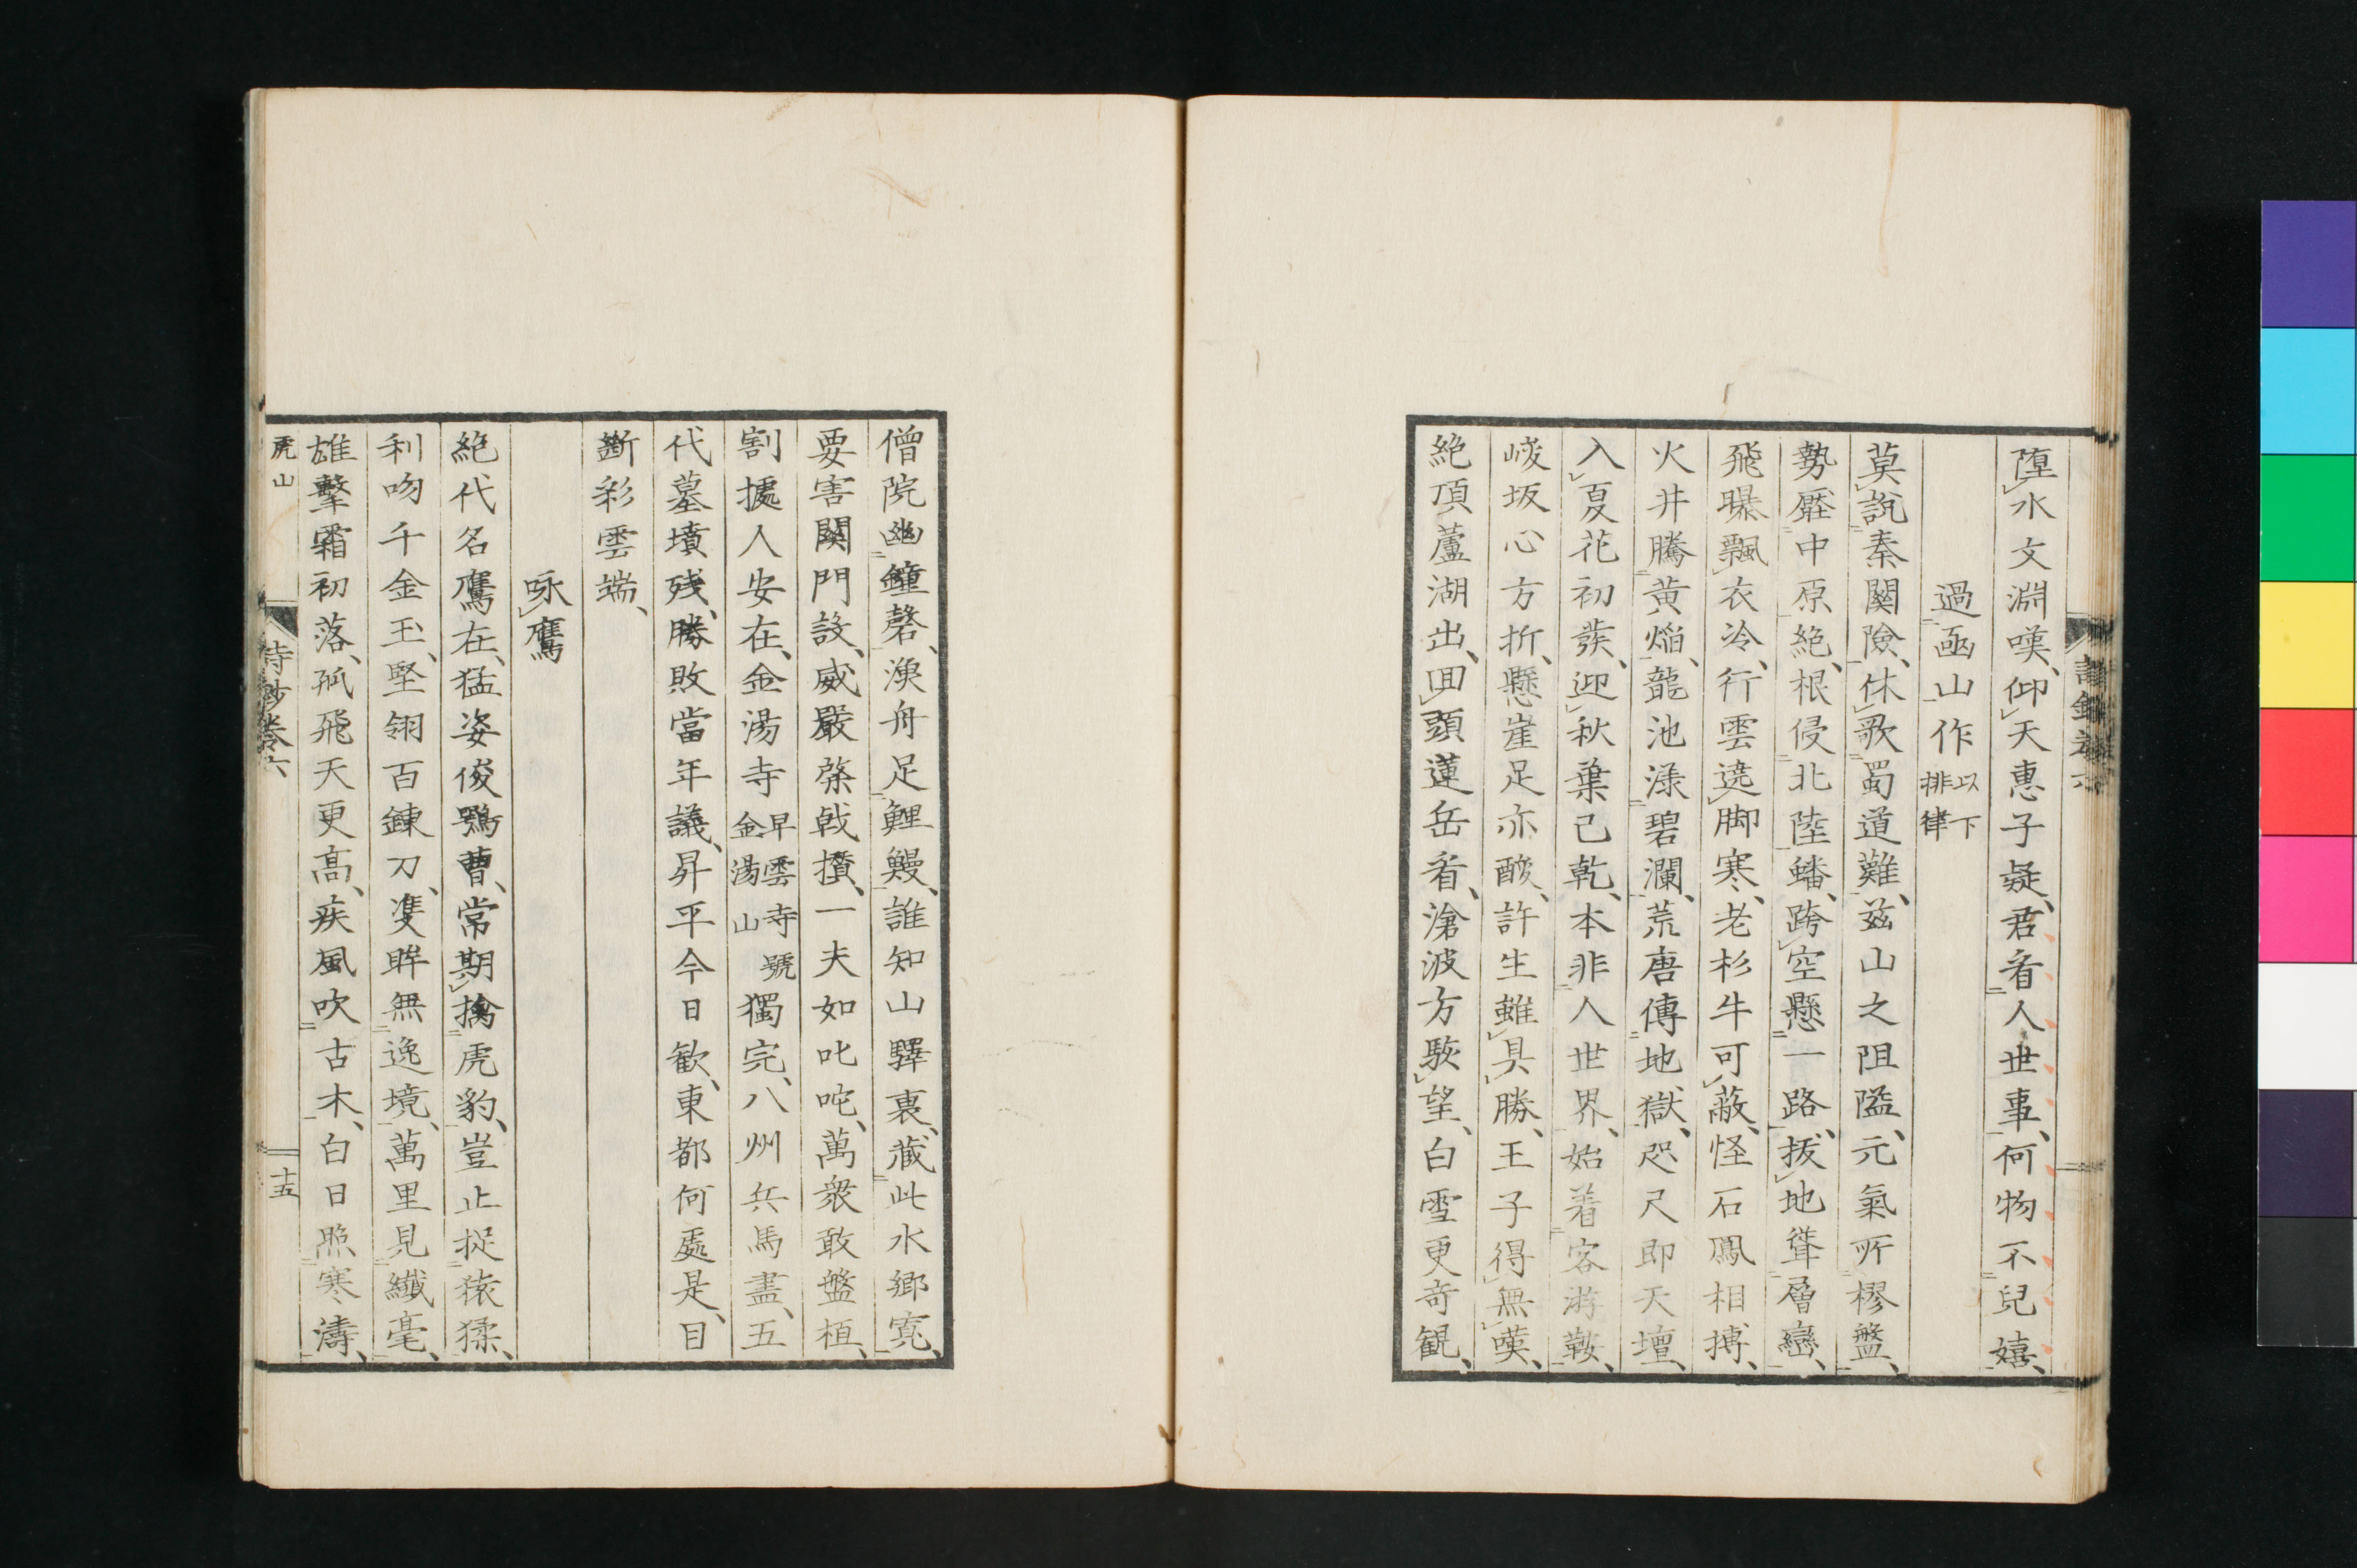 堕水文淵嘆、仰天惠子疑、君看人世事、何物不兒嬉、
過凾山作以下排律
莫說秦關險、休歌蜀道難、茲山之阻隘、元氣所樛盤、
勢壓中原絶、根侵北陸蟠、跨空懸一路、拔地聳層巒、
飛瀑飄衣冷、行雲遶脚寒、老杉牛可蔽、怪石鳳相搏、
火井騰黃熖、龍池渌碧瀾、荒唐傳地獄、咫尺即天壇、
入夏花初發、迎秋葉已乾、本非人世界、始着客游鞍、
峻坂心方折、懸崖足亦酸、許生雖具勝、王子得無嘆、
絶頂蘆湖出、回頭蓮岳看、滄波方駭望、白雪更奇観、
僧院幽鐘磬、漁舟足鯉鰻、誰知山驛裏、藏此水鄉寬、
要害關門設、威嚴棨戟攢、一夫如叱咤、萬衆敢盤桓、
割據人安在、金湯寺早雲寺號金湯山獨完、八州兵馬盡、五
代墓墳残、勝敗當年議、昇平今日歡、東都何處是、目
斷彩雲端、
咏鷹
絶代名鷹在、猛姿俊鶚曹、常期擒虎豹、豈止捉猿猱、
利吻千金玉、堅翎百鍊刀、隻眸無逸境、萬里見纖毫、
雄擊霜初落、孤飛天更高、疾風吹古木、白日照寒濤、
虎山
詩鈔卷六
十五